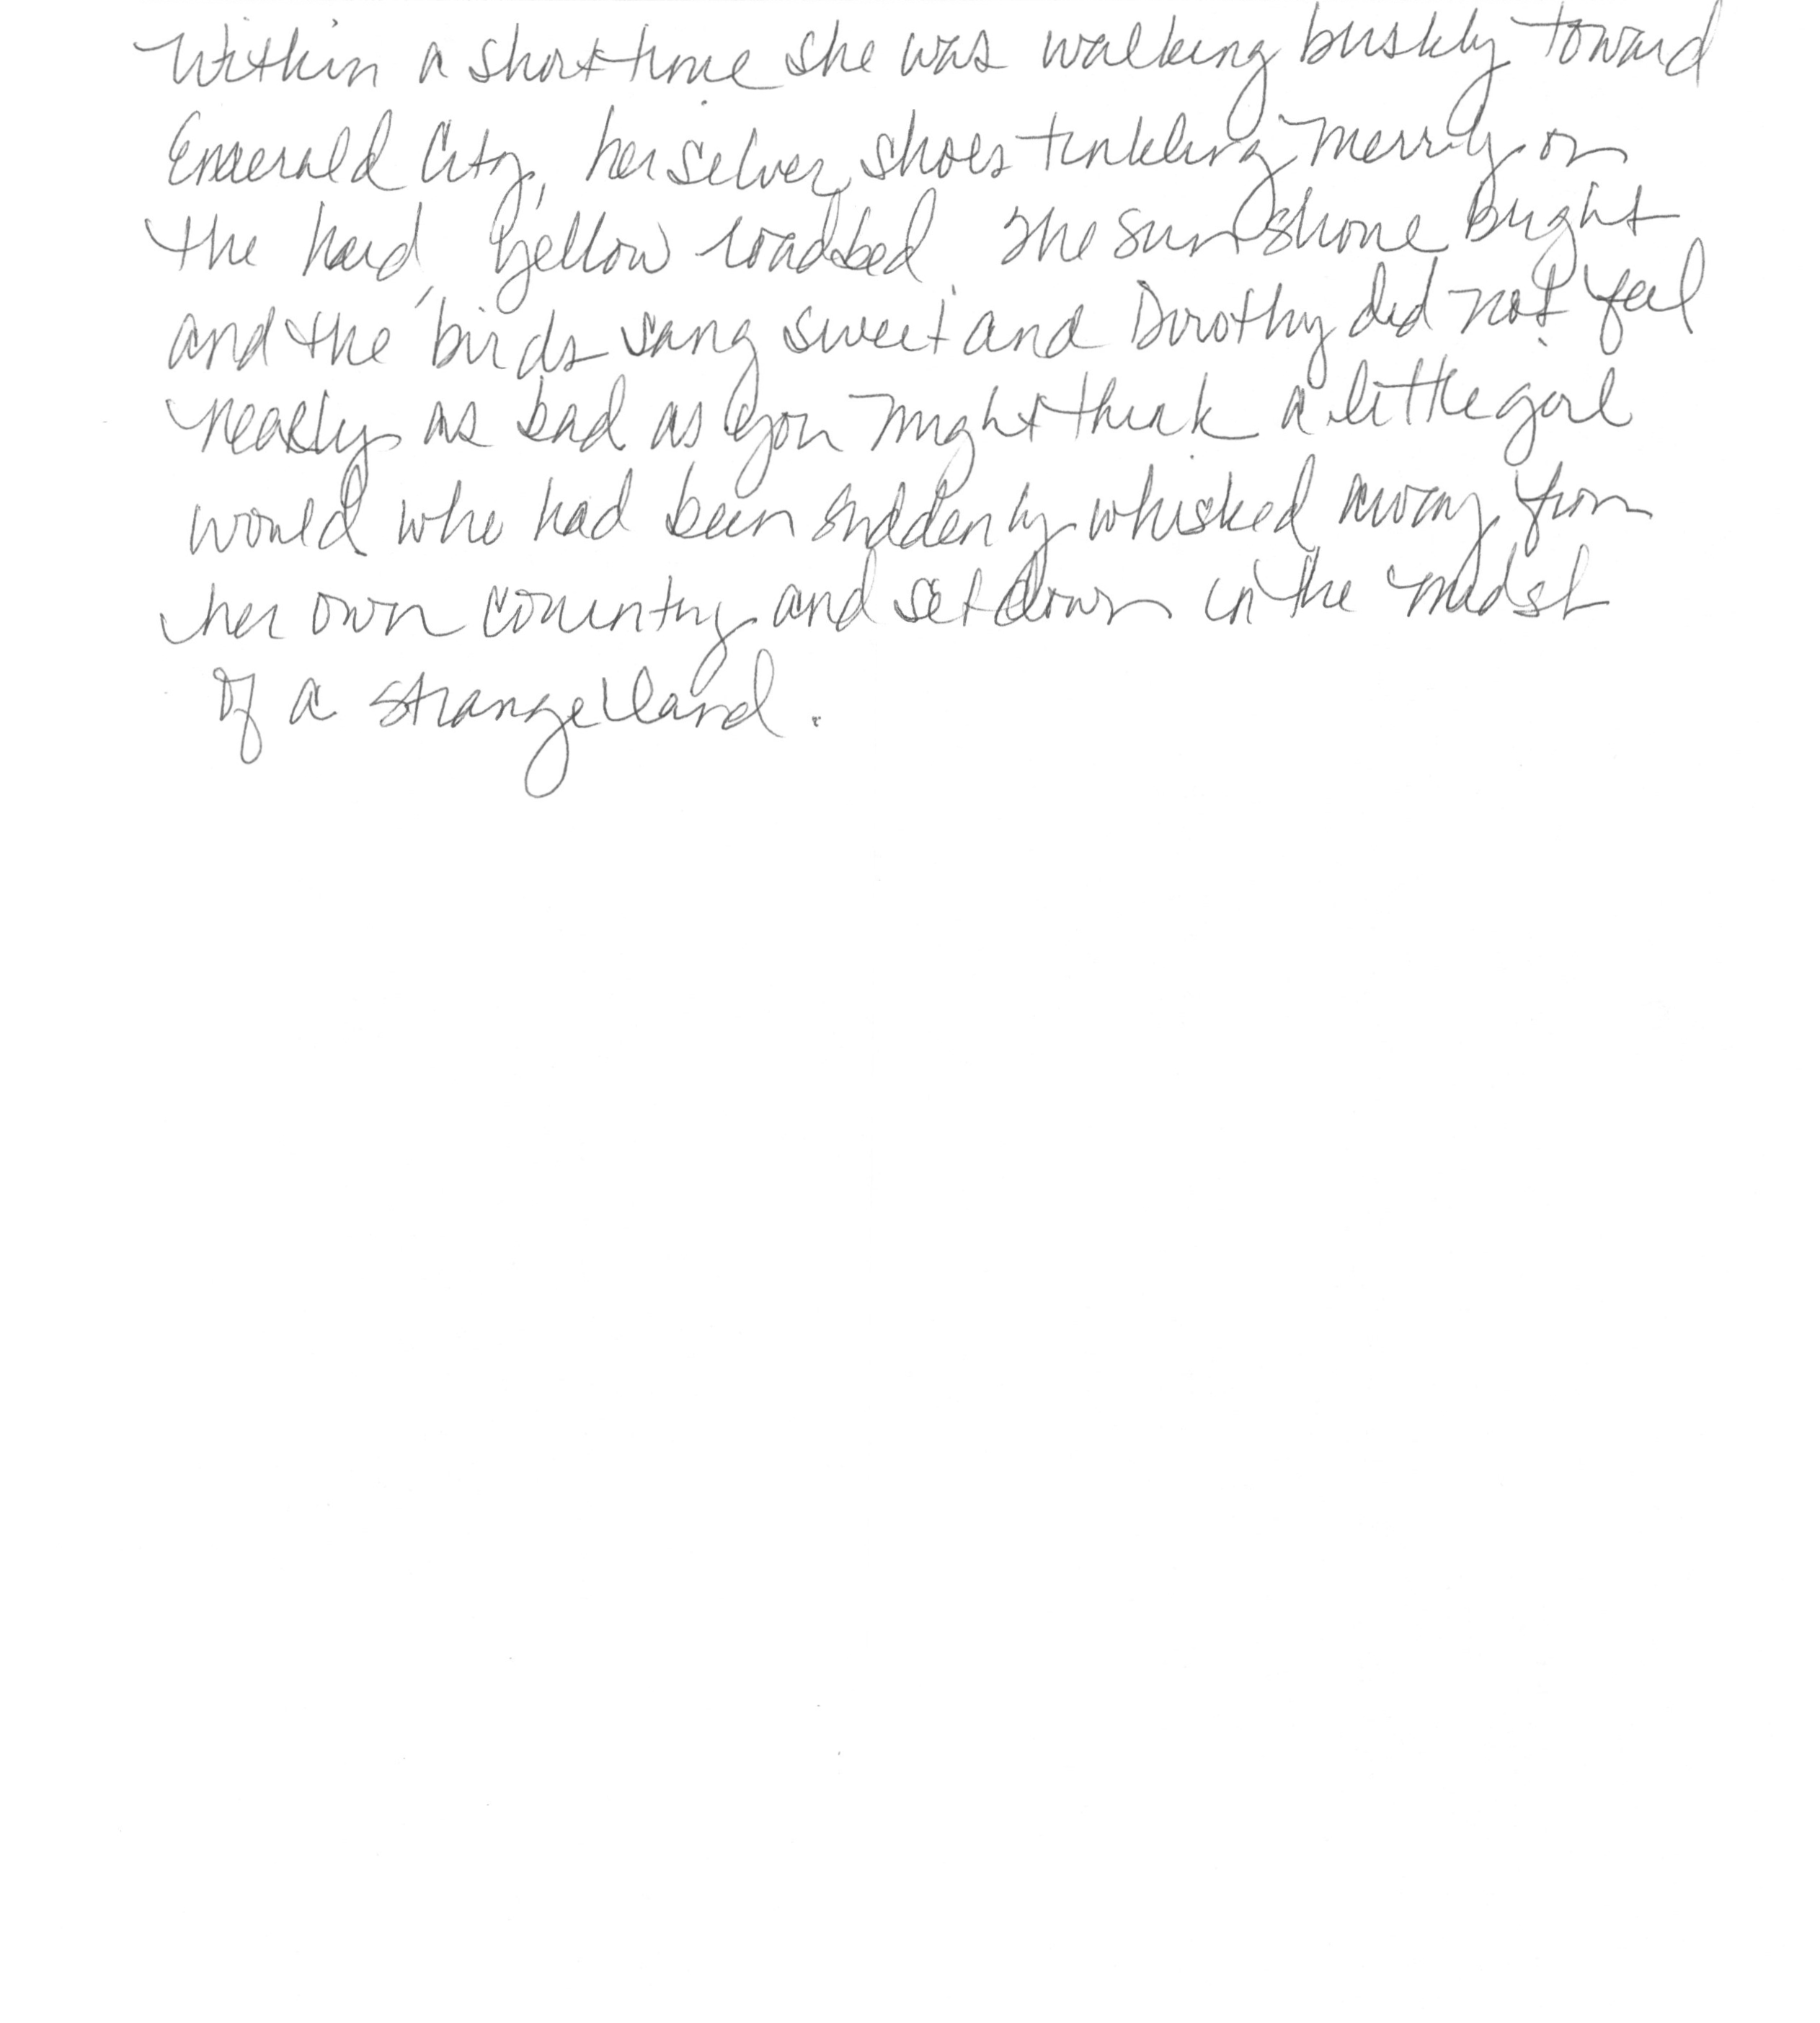 Within a short time she was walking briskly toward
Emerald City, her silver shoes tinkling merrily on
the hard, yellow roadbed. The sun shone bright
and the birds sang sweet and Dorothy did not feel
nearly as bad as you might think a little girl
would who had been suddenly whisked away from
her own country and set down in the midst
of a strange land.